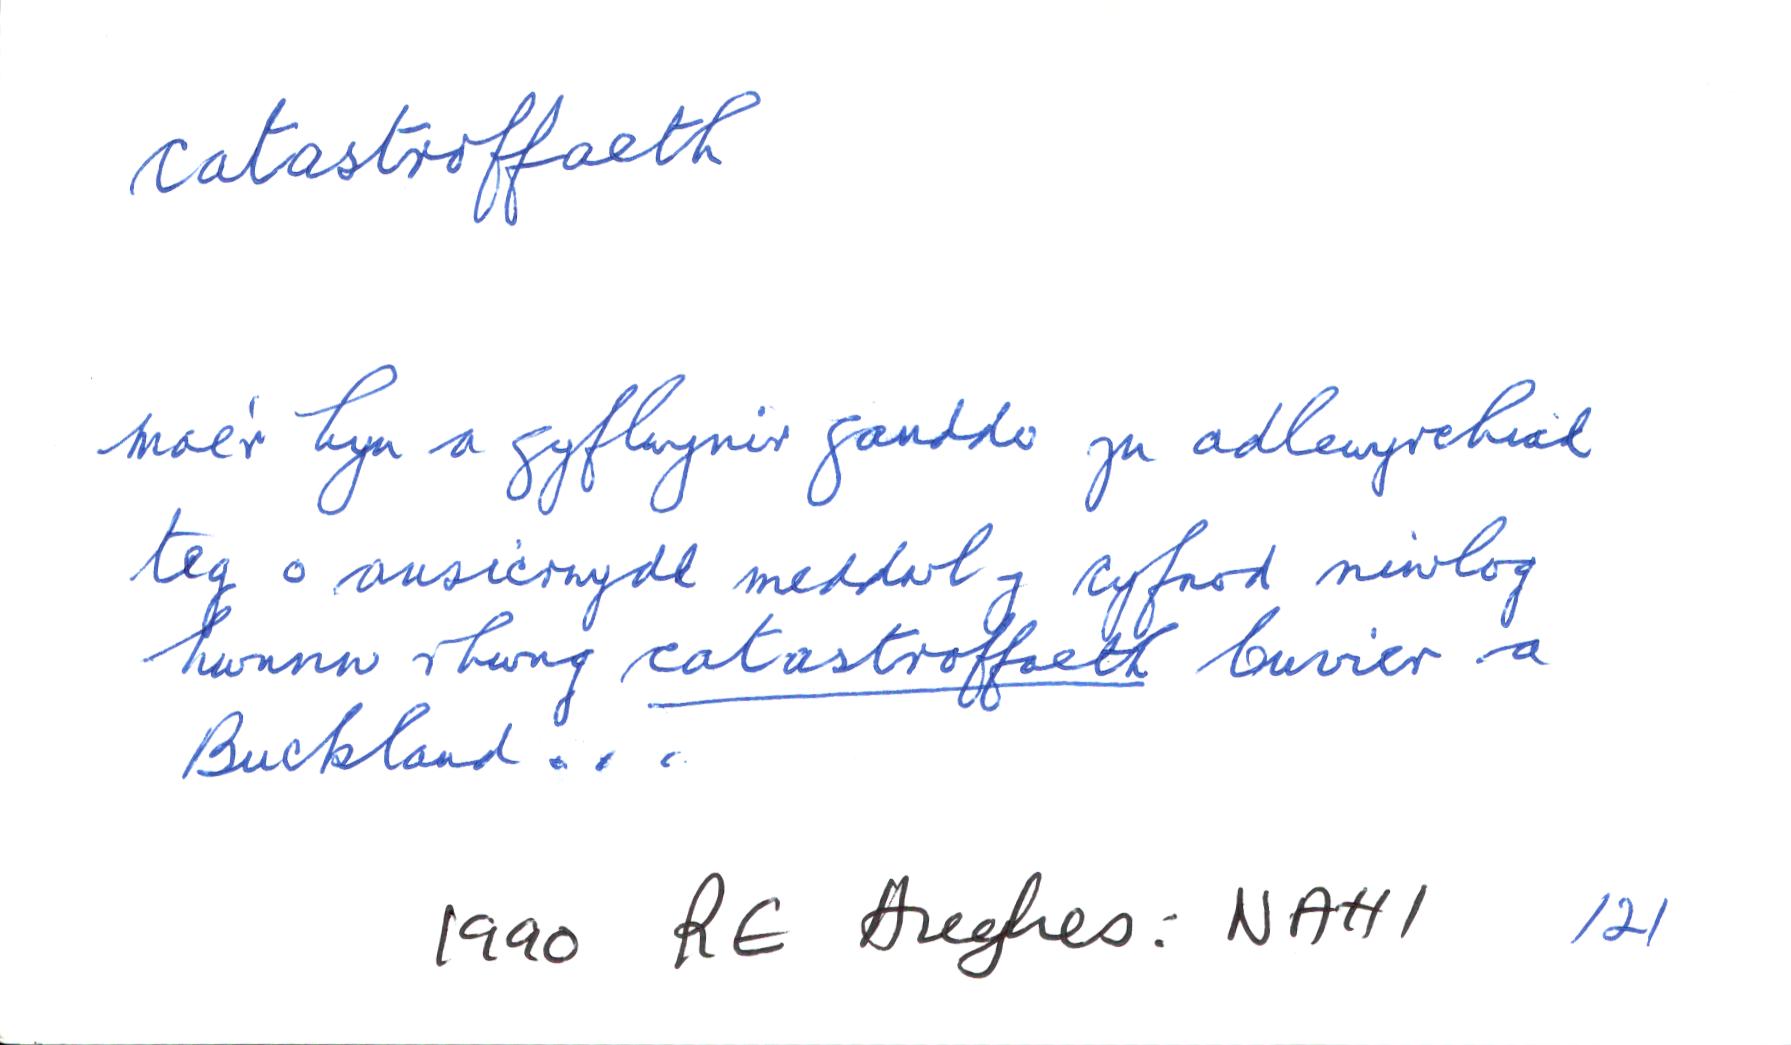 catastroffaeth
mae'r hyn a gyflwynir ganddo yn adlewyrchiad
teg o ansicrwydd meddwl y cyfnod niwlog
hwnnw rhwng catastroffaeth Cuvier a
Buckland...
1990 RE Hughes: NAHI 121